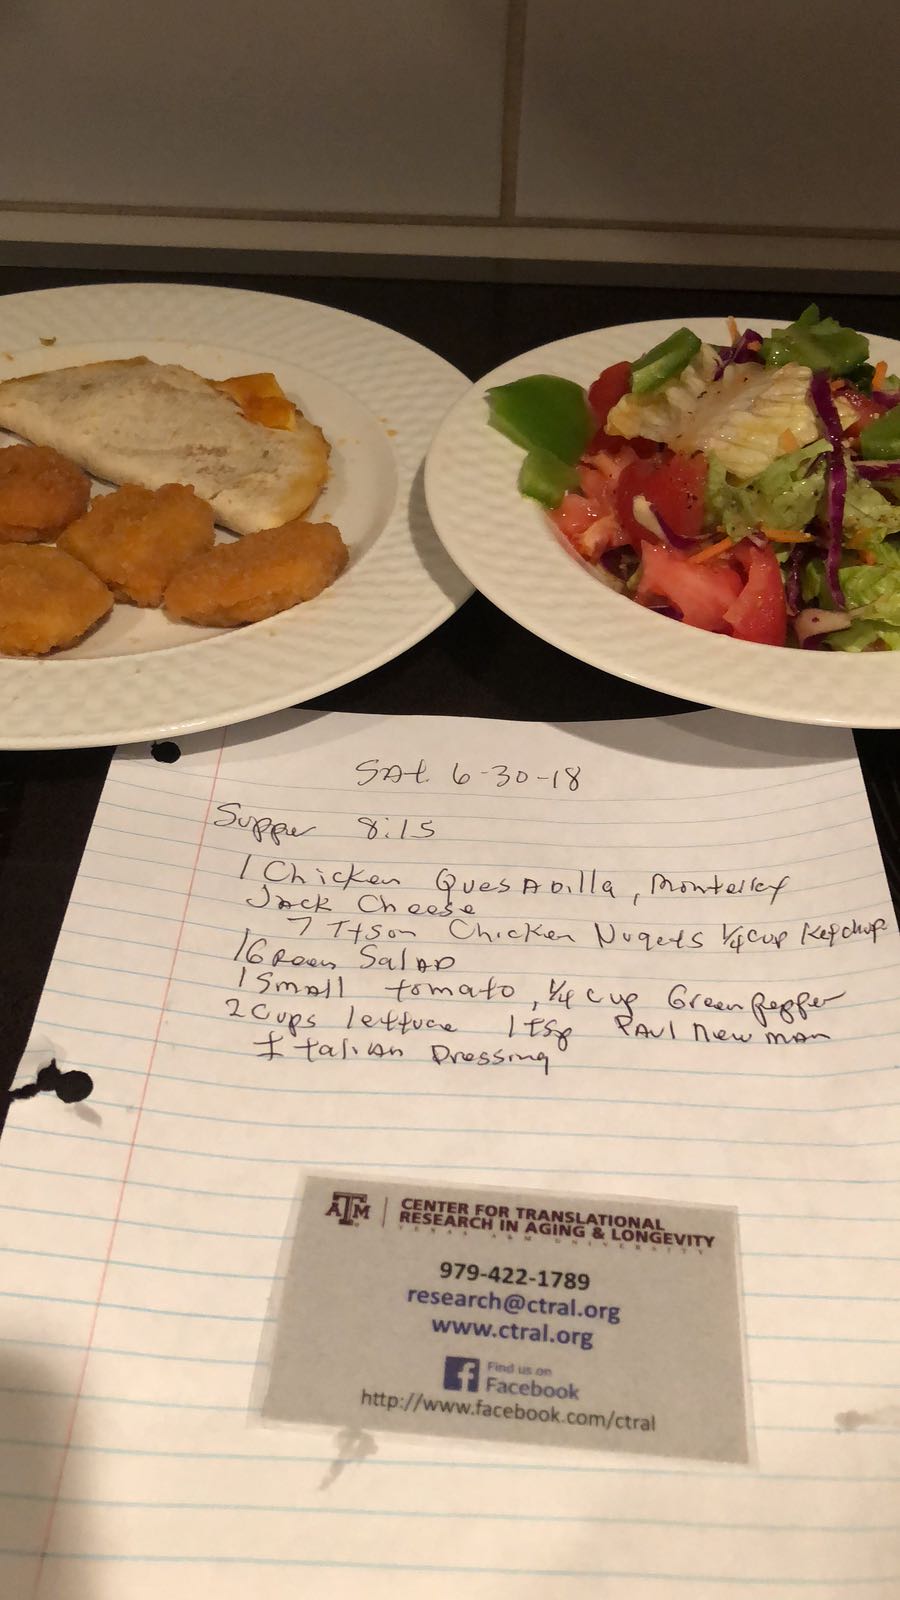 SAt. 6-30-18
Supper 8:15
1 Chicken QuesADilla, Monterrey
JAck Cheese
7 Tyson Chicken Nugets 1/4 cup Ketchup
1 GReen SalAD
1 Small tomato, 1/4 cup Green pepper
2 Cups lettuce 1 tsp PAul Newman
ItaliAn Dressing
ATM CENTER FOR TRANSLATIONAL
RESEARCH IN AGING & LONGEVITY
TEXAS A&M UNIVERSITY
979-422-1789
research@ctral.org
www.ctral.org
f Find us on
Facebook
http://www.facebook.com/ctral